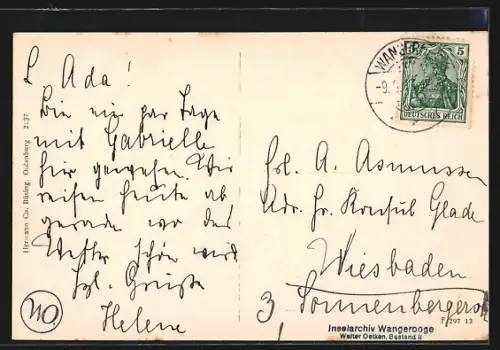 L Ada!
bin ein par Tage
mit Gabrielle
hier gewesen. Wir
reisen heute ab
gerade wo das
Wetter schön wird
Hzl. Grüße
Helene
40
Hermann Ch. Büsing, Oldenburg 2137
WANGER
-9.
5
DEUTSCHES REICH
Frl. A. Asmussen
Adr. Fr. Konsul Glade
Wiesbaden
3, Sonnenbergerstr
F 297 13
Inselarchiv Wangerooge
Walter Oetken, Bestand II